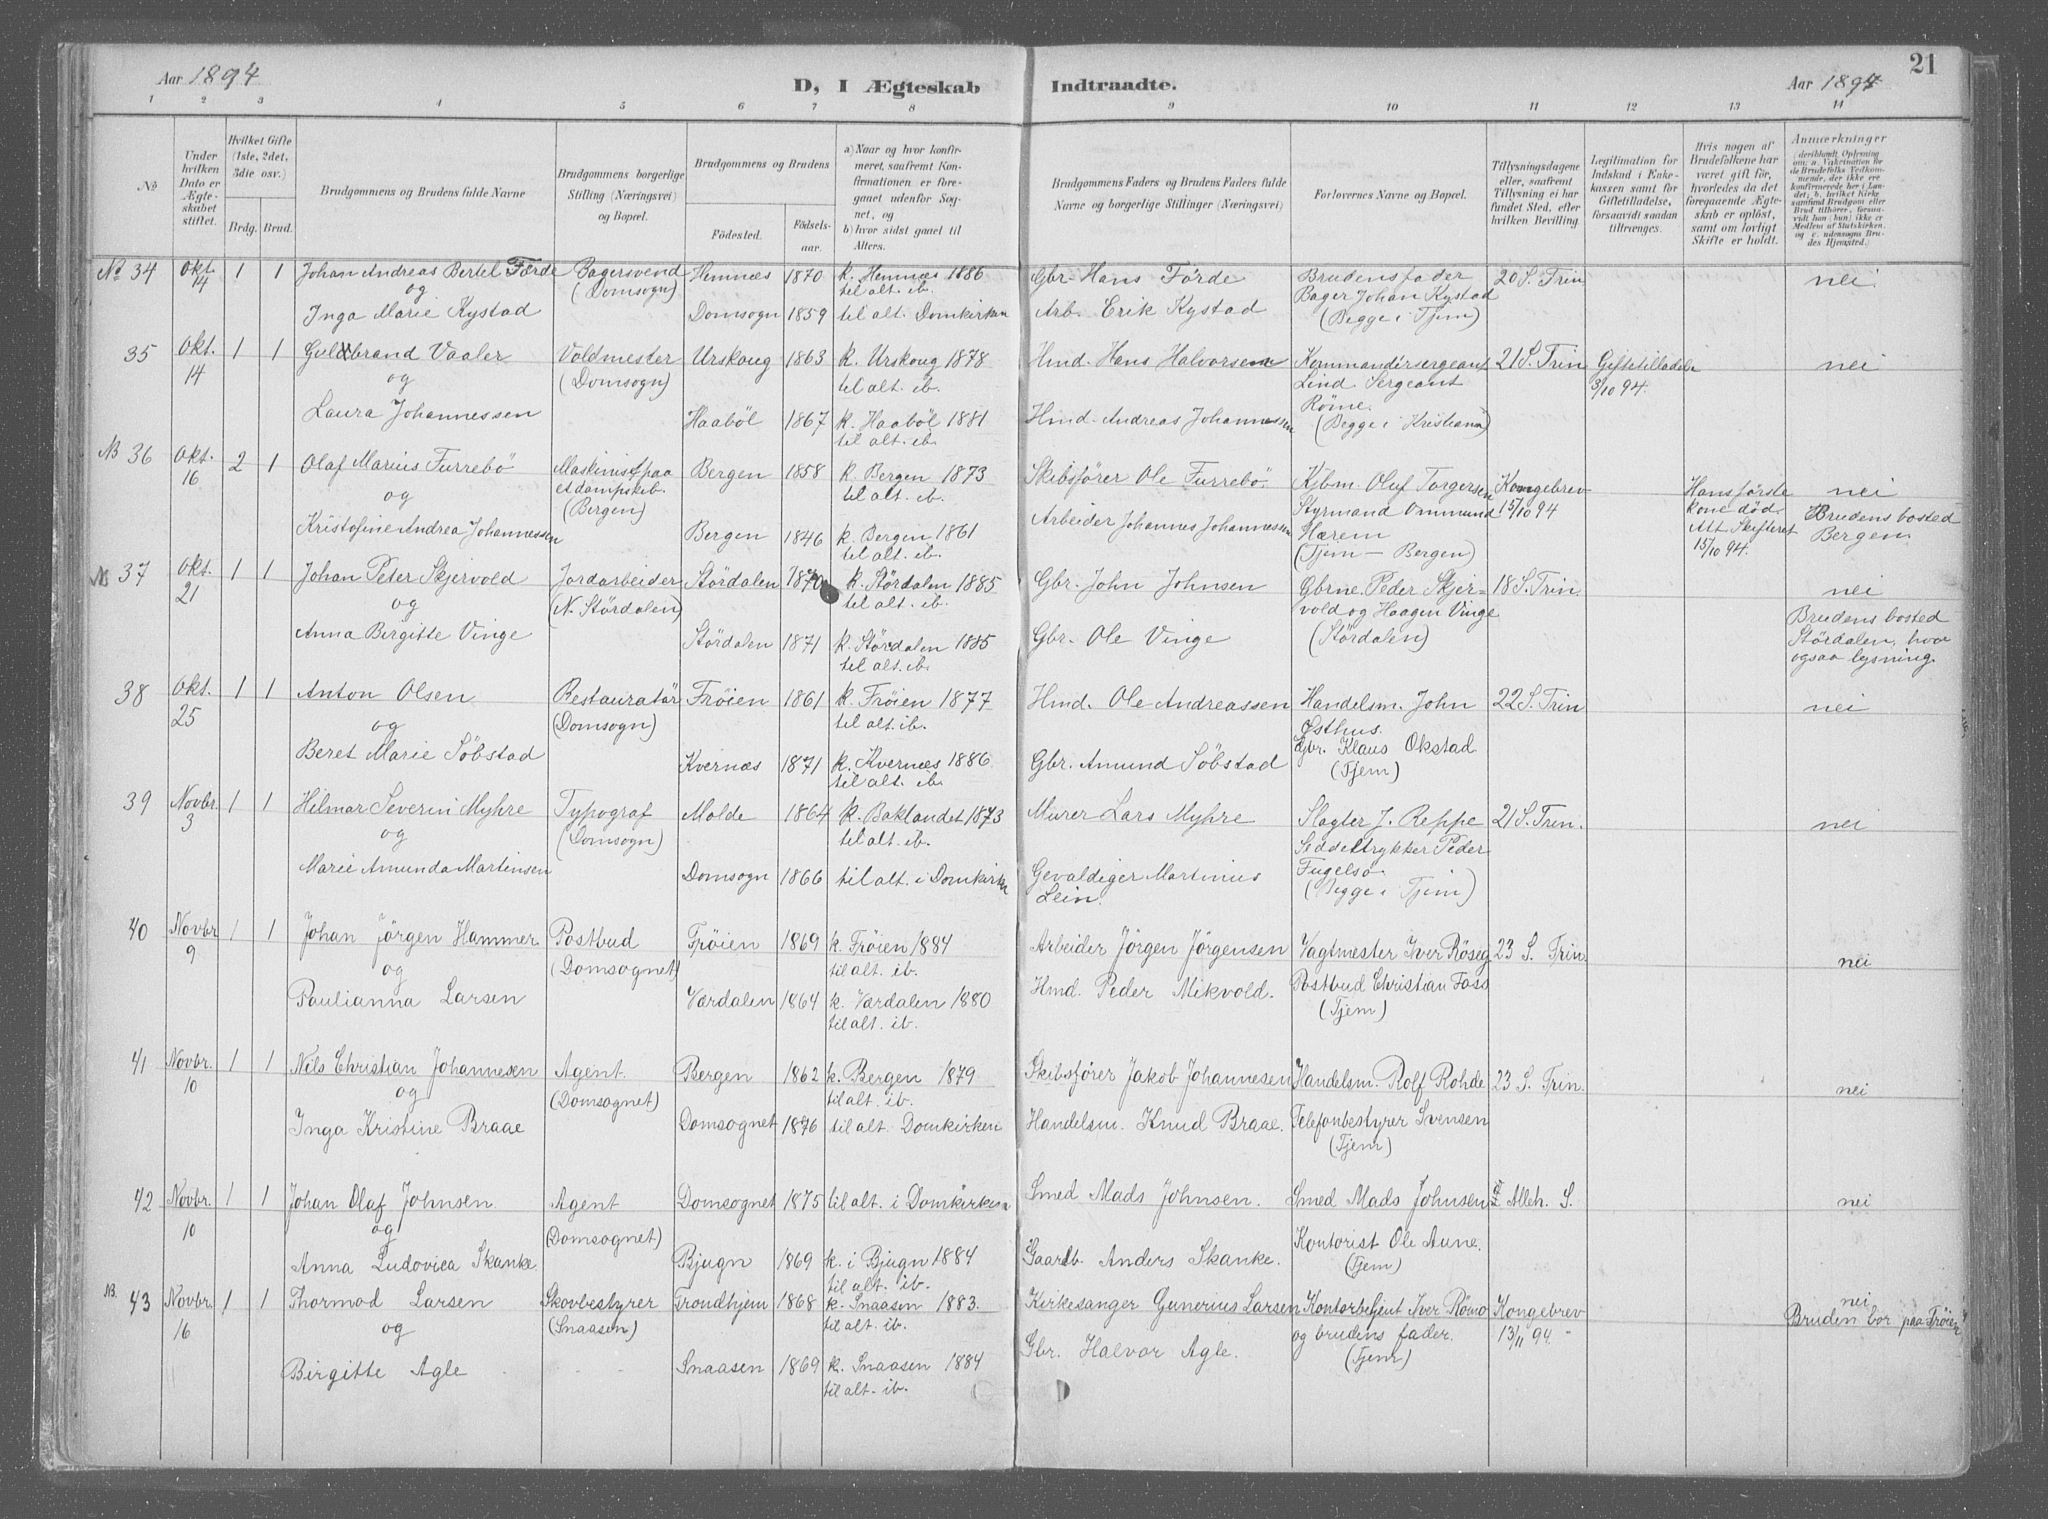 21
Aar 1894
D, I Ægteskab
Indtraadte.
Aar 1894
1 2 3 4 5 6 7 8 9 10 11 12 13 14
No
Under hvilken Dato er Ægteskabet stiftet.
Hvilket Gifte (1ste, 2det, 3die osv.)
Brdg. Brud.
Brudgommens og Brudens fulde Navne
Brudgommens borgerlige Stilling (Næringsvei) og Bopæl.
Brudgommens og Brudens
Fødested. Fødsels-aar.
a) Naar og hvor konfirmeret, saafremt Konfirmationen er foregaaet udenfor Sognet, og
b) hvor sidst gaaet til Alters.
Brudgommens Faders og Brudens Faders fulde Navne og borgerlige Stillinger (Næringsvei)
Forlovernes Navne og Bopæl.
Tillysningsdagene eller, saafremt Tillysning ei har fundet Sted, efter hvilken Bevilling.
Legitimation for Indskud i Enkekassen samt for Giftetilladelse, forsaavidt saadan tiltrænges.
Hvis nogen af Brudefolkene har været gift før, hvorledes da det foregaaende Ægteskab er opløst, samt om lovligt Skifte er holdt.
Anmærkninger
No 34 Okt. 14 1 1 Johan Andreas Bertel Færde Bagersvend Hemnæs 1870 k. Hemnæs 1886 Gbr. Hans Förde Brudens fader 20 S. Trin nei
og (Domsogn) til alt. ib. Bager Johan Kystad
Inga Marie Kystad Domsogn 1859 til alt. Domkirken Arb. Erik Kystad (Begge i Tjem)
35 Okt. 14 1 1 Guldbrand Vaaler Voldmester Urskoug 1863 k. Urskoug 1878 Hmd. Hans Halvorsen Kommandörsergeant 21 S. Trin Giftetilladelse nei
og (Domsogn) til alt. ib. Lind Sergeant 3/10 94.
Laura Johannessen Haaböl 1867 k. Haaböl 1881 Hmd. Andreas Johannessen Röme.
til alt. ib. (Begge i Kristiania)
NB 36 Okt. 16 2 1 Olaf Marius Furrebö Maskinist paa Bergen 1858 k. Bergen 1873 Skibsfører Ole Furrebö Kjbm. Oluf Torgersen Kongebrev Hans første nei
og et dampskib. til alt. ib. Styrmand Ommund 15/10 94 kone död. Brudens bosted
Kristofine Andrea Johannessen (Bergen) Bergen 1846 k. Bergen 1861 Arbeider Johannes Johannessen Hærem Alt Skifteret Bergen.
til alt. ib. (Tjem - Bergen) 15/10 94.
NB 37 Okt. 21 1 1 Johan Peter Skjervold Jordarbeider Stördalen 1870 k. Stördalen 1885 Gbr. John Johnsen Gbrne. Peder Skjer- 18 S. Trin nei
og (N. Stördalen) til alt. ib. vold og Haagen Vinge Brudens bosted
Anna Birgitte Vinge Stördalen 1871 k. Stördalen 1885 Gbr. Ole Vinge (Stördalen) Stördalen, hvor
til alt. ib. ogsaa lysning.
38 Okt. 25 1 1 Anton Olsen Restauratör Fröien 1861 k. Fröien 1877 Hmd. Ole Andreassen Handelsm. John 22 S. Trin nei
og (Domsogn) til alt. ib. Østhus.
Beret Marie Söbstad Kvernæs 1871 k. Kvernæs 1886 Gbr. Amund Söbstad Gbr. Klaus Okstad
til alt. ib. (Tjem)
39 Novbr. 3 1 1 Hilmar Severin Myhre Typograf Molde 1864 k. Baklandet 1873 Murer Lars Myhre Slagter J. Reppe 21 S. Trin. nei
og (Domsogn) til alt. ib. Seddeltrykker Peder
Marie Amunda Martinsen Domsogn 1866 til alt. i Domkirken Gevaldiger Martinius Fugelsö.
Lein. (Begge i Tjem)
40 Novbr 9 1 1 Johan Jörgen Hammer Postbud Fröien 1869 k. Fröien 1884 Arbeider Jörgen Jörgensen Vagtmester Iver Rösig 23 S. Trin. nei
og (Domsognet) til alt. ib.
Paulianna Larsen Værdalen 1864 k. Værdalen 1880 Hmd. Peder Mikvold. Postbud Christian Foss
til alt. ib. (Tjem)
41 Novbr. 10 1 1 Nils Christian Johannesen Agent. Bergen 1862 k. Bergen 1879 Skibsfører Jakob Johannesen Handelsm. Rolf Rohde 23 S. Trin. nei
og (Domsognet) til alt. ib.
Inga Kristine Braae Domsognet 1876 til alt. Domkirken Handelsm. Knud Braae. Telefonbestyrer Svensen
(Tjem)
42 Novbr. 10 1 1 Johan Olaf Johnsen Agent Domsognet 1875 til alt. i Domkirken Smed Mads Johnsen. Smed Mads Johnsen Alleh. S. nei
og (Domsognet) Kontorist Ole Aune.
Anna Ludovica Skanke Bjugn 1869 k. i Bjugn 1884 Gaardb. Anders Skanke. (Tjem)
til alt. ib.
NB. 43 Novbr. 16 1 1 Thormod Larsen Skovbestyrer Trondhjem 1868 k. Snaasen 1883. Kirkesanger Gunerius Larsen Kontorbetjent Iver Römo Kongebrev nei
og (Snaasen) til alt. ib. og brudens fader. 13/11 94. Bruden bor paa Fröien
Birgitte Agle Snaasen 1869 k. Snaasen 1884 Gbr. Halvor Agle. (Tjem)
til alt. ib.